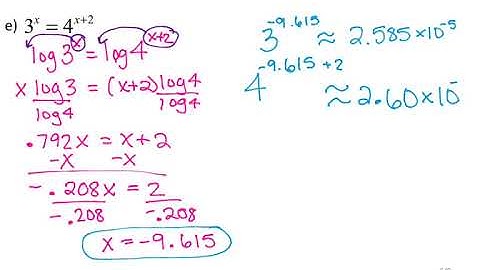 e) 3ˣ = 4ˣ⁺²
log 3ˣ = log 4ˣ⁺²
x log 3 = (x+2) log 4
log 4 log 4
.792x = x + 2
-x -x
-.208x = 2
-.208 -.208
x = -9.615
3⁻⁹·⁶¹⁵ ≈ 2.585 × 10⁻⁵
4⁻⁹·⁶¹⁵⁺² ≈ 2.60 × 10⁻